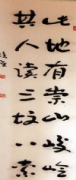 此地有崇山峻岭
其人读三坟八索